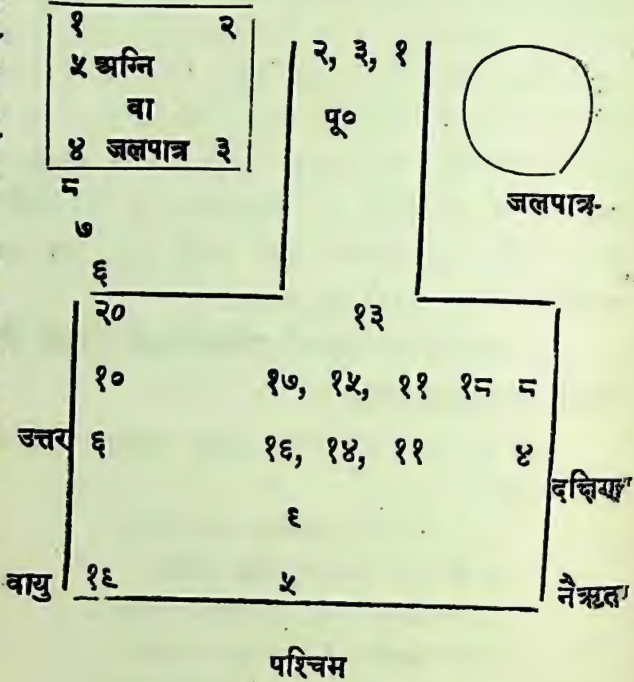 १ २
५ अग्नि
वा
४ जलपात्र ३
८
७
६
२, ३, १
पू०
जलपात्र
२० १३
१० १७, १५, ११ १८ ८
उत्तर ६ १६, १४, ११ ४
दक्षिण
९
वायु १९ ५ नैऋत
पश्चिम